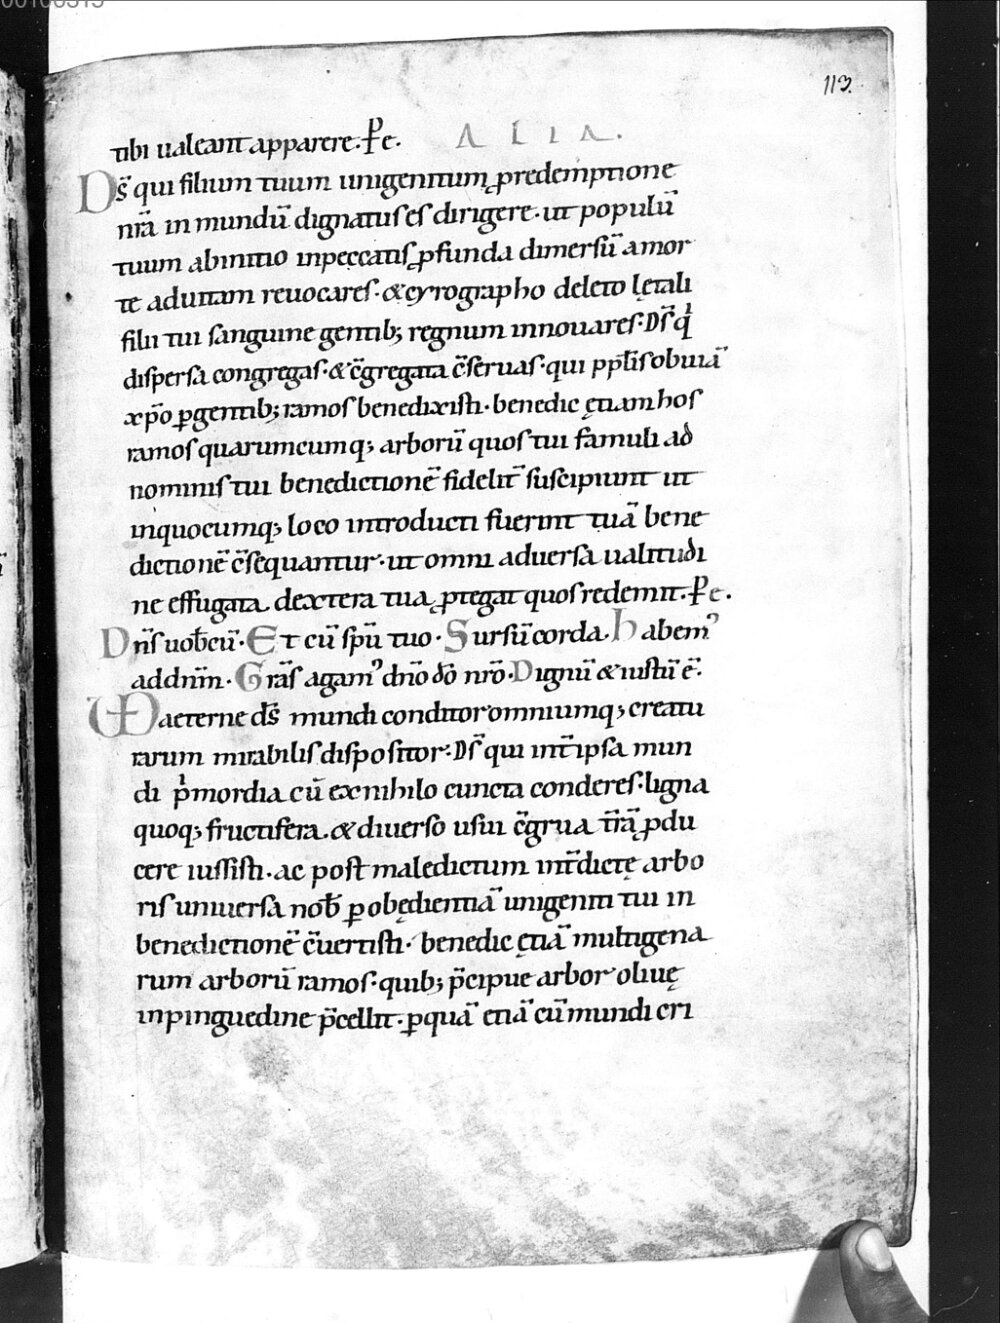 113.
tibi ualeant apparere. ꝑe. ALIA.
Ds̄ qui filium tuum unigenitum ꝓ redemptione
nr̄a in mundū dignatus es dirigere. ut populū
tuum ab initio in peccatis ꝓfunda dimersū a mor
te ad uitam reuocares. & cyrographo deleto lętali
filii tui sanguine gentib; regnum innouares. Ds̄ qͥ
dispersa congregas. & c̄gregata c̄seruas. qui ppl̄is obuiā
xp̄o ꝑgentib; ramos benedixisti. benedic ętiam hos
ramos quarumcumq; arborū quos tui famuli ad
nominis tui benedictionē fidelit̄ suscipiunt ut
in quocumq; loco introducti fuerint tuā bene
dictionē c̄sequantur. ut omni aduersa ualitudi
ne effugata dextera tua ꝓtegat quos redemit. ꝑe.
Dn̄s uob̄cū. Et cū sp̄u tuo. Sursū corda. Habem᾿
ad dn̄m. Grās agam᾿ dn̄o dō nr̄o. Dignū & iustū ē.
VD aeterne ds̄ mundi conditor omniumq; creatu
rarum mirabilis dispositor. Ds̄ qui int̄ ipsa mun
di pͥmordia cū ex nihilo cuncta conderes. ligna
quoq; fructifera. & diuerso usui c̄grua t̄rā ꝓdu
cere iussisti. ac post maledictum int̄dictę arbo
ris uniuersa nob̄ ꝑ obędientiā unigeniti tui in
benedictionē c̄uertisti. benedic ętiā multigena
rum arborū ramos. quib; p̄cipue arbor oliuę
in pinguedine p̄cellit. ꝑ quā etiā cū mundi cri